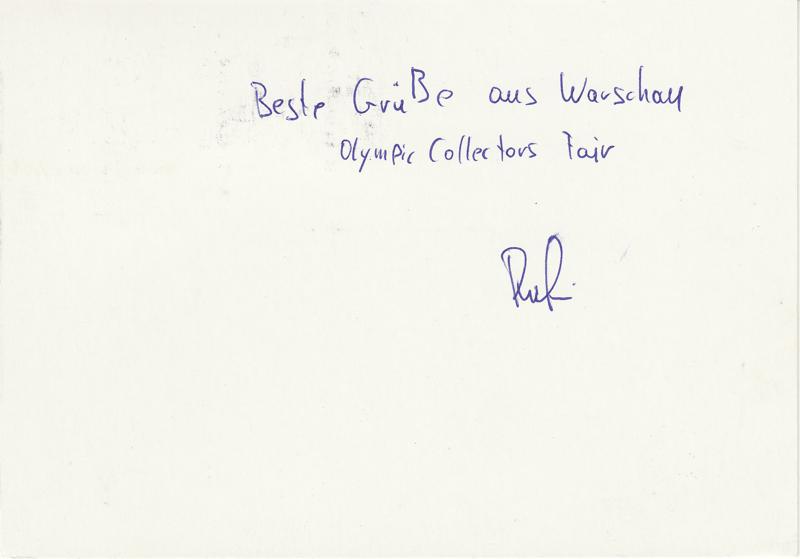 Beste Grüße aus Warschau
Olympic Collectors Fair